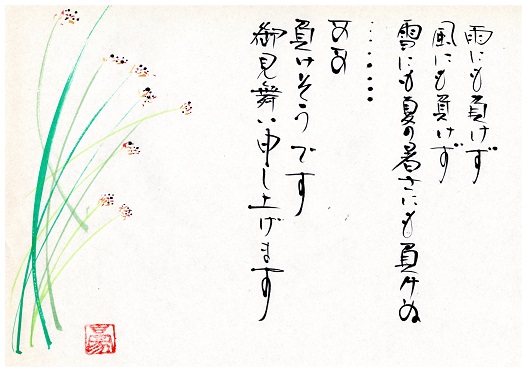 雨にも負けず
風にも負けず
雪にも夏の暑さにも負けぬ
・・・・・・
ああ
負けそうです
御見舞い申し上げます